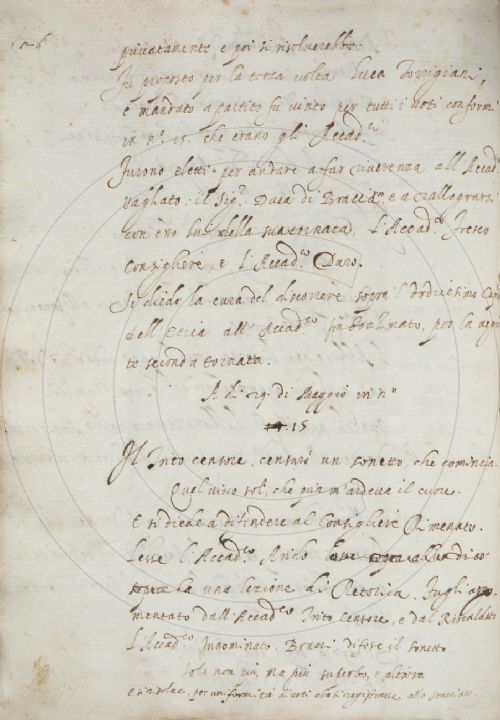 privatamente e poi si risolverebbe.
Fu proposto per la terza volta Luca Torrigiani,
e mandato a partito fu vinto per tutti i voti conform
in n.º 15. che erano gli Accad.ci
Furono eletti per andare a far riverenza all Accad.
Vagliato: il Sig.r Duca di Bracc.no, e a rallegrarsi
con esso lui della sua tornata, l'Accad.co Fresco
Consigliere, e l'Accad.co Duro.
Si diede la cura del discorrere sopra l dodicesimo Cap
dell'Etica all'Accad.co per la
te seconda tornata.
A di 29. di Maggio in n.º
15
Il Trito censore, censurò un sonetto, che comincia.
Quel vivo sol, che pria m'ardeva il cuore.
E si diede a difendere al Consigliere Rimenato.
Lesse l'Accad.co Arido
la una lezione di Retorica. Fugli
mentato dall'Accad.co Trito Censore, e dal Riscaldato
L'Accad.co Innominato. Bracci difese il sonetto
solo non più, ma più superbo, e altera
e si risolse, per uniformità di voti che si registrasse allo stacciato.